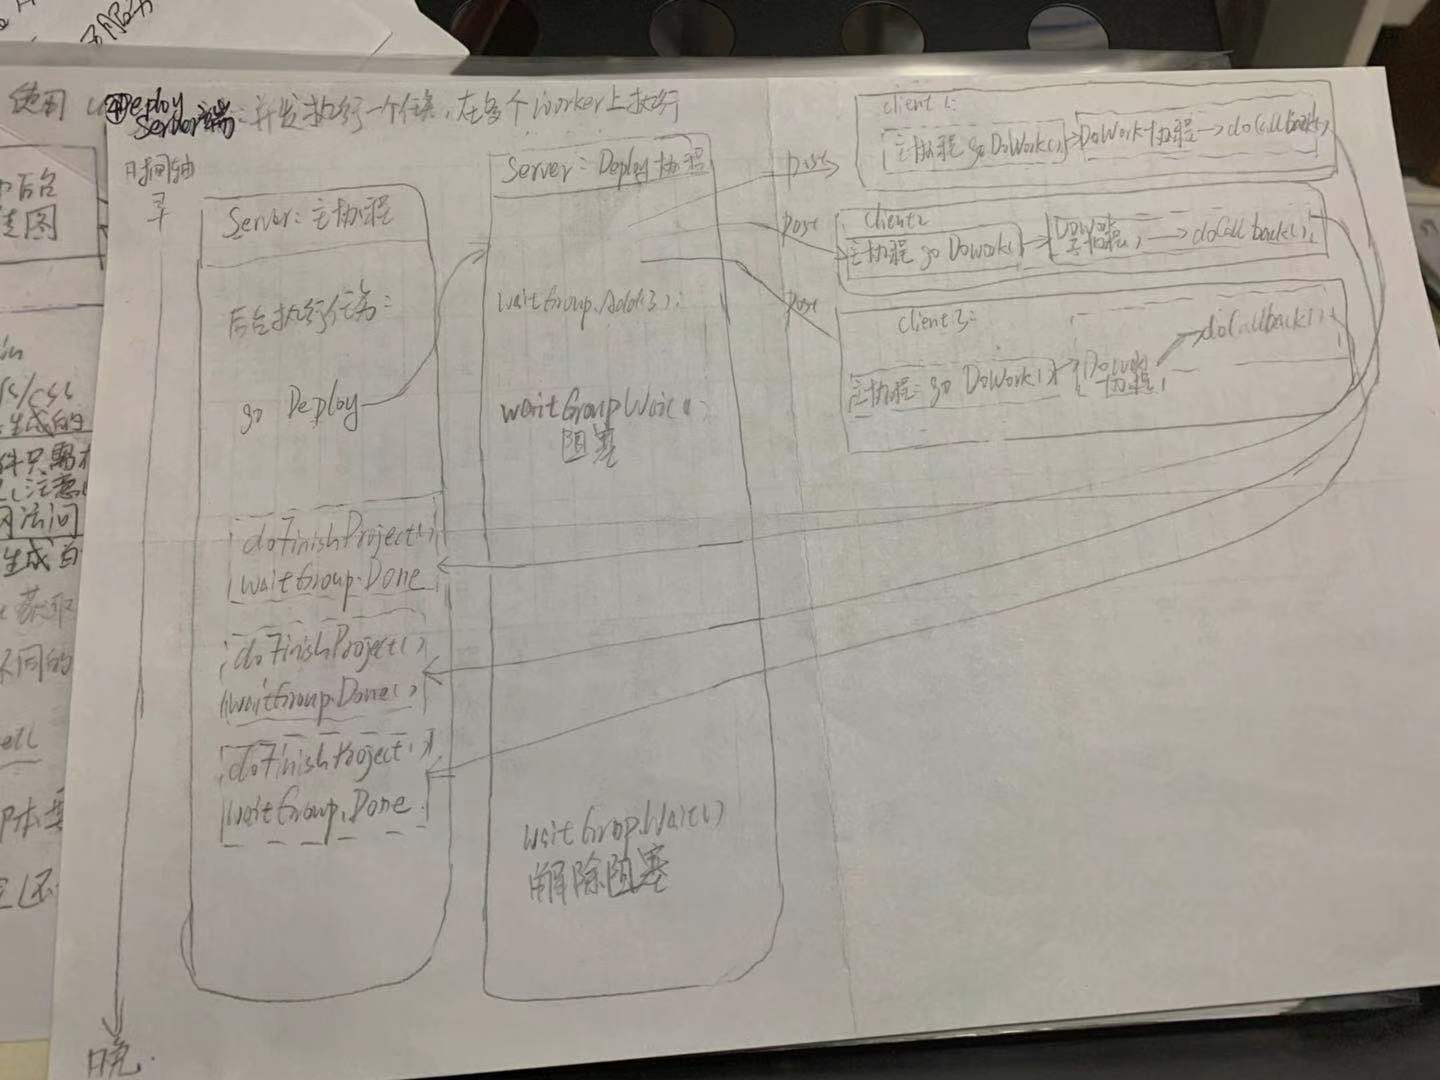 ④Deploy
Server端:并发执行一个任务,在多个worker上执行
时间轴
早
Server:主协程
后台执行任务:
go Deploy
doFinishProject()
waitGroup.Done
doFinishProject()
waitGroup.Done()
doFinishProject()
waitGroup.Done
晚
Server:Deploy协程
waitGroup.Add(3);
waitGroup.Wait();
阻塞
waitGrop.Wait()
解除阻塞
post
post
post
client1:
主协程 go DoWork()
DoWork协程
doCallback()
client2
主协程 go DoWork()
doCallback();
client3:
主协程:go DoWork()
DoWork
协程
doCallback();
使用
后台
图
生成的
件只需
注意
访问
生成
获取
不同的